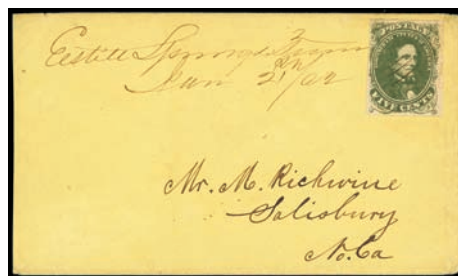 Estill Springs Tenn
Jan 21st/62
POSTAGE
FIVE CENTS
Mr. M. Richwine
Salisbury
No. Ca